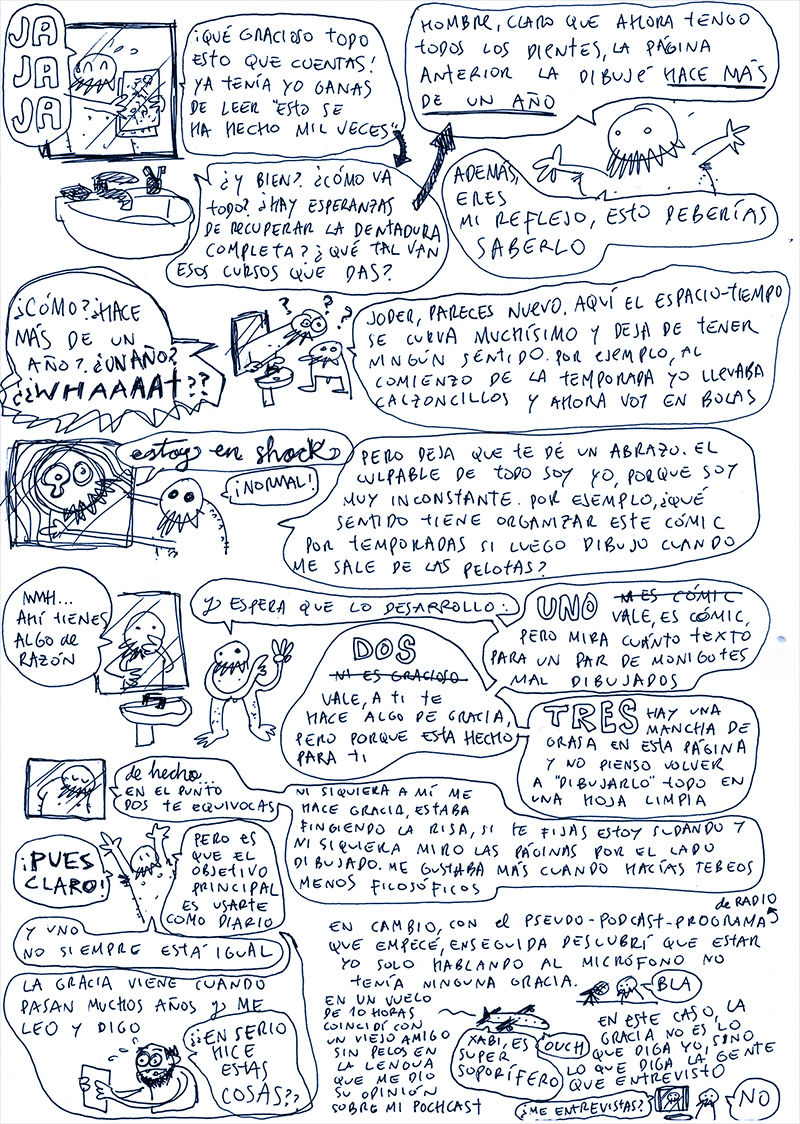 JA
JA
JA
¡QUÉ GRACIOSO TODO
ESTO QUE CUENTAS!
YA TENÍA YO GANAS
DE LEER "ESTO SE
HA HECHO MIL VECES"
¿Y BIEN? ¿CÓMO VA
TODO? ¿HAY ESPERANZAS
DE RECUPERAR LA DENTADURA
COMPLETA? ¿QUÉ TAL VAN
ESOS CURSOS QUE DAS?
HOMBRE, CLARO QUE AHORA TENGO
TODOS LOS DIENTES, LA PÁGINA
ANTERIOR LA DIBUJÉ HACE MÁS
DE UN AÑO
ADEMÁS,
ERES
MI REFLEJO, ESTO DEBERÍAS
SABERLO
¿CÓMO? ¿HACE
MÁS DE UN
AÑO? ¿UN AÑO?
¿¿WHAAAAT??
? ? ?
JODER, PARECES NUEVO. AQUÍ EL ESPACIO-TIEMPO
SE CURVA MUCHÍSIMO Y DEJA DE TENER
NINGÚN SENTIDO. POR EJEMPLO, AL
COMIENZO DE LA TEMPORADA YO LLEVABA
CALZONCILLOS Y AHORA VOY EN BOLAS
estoy en shock
¡NORMAL!
PERO DEJA QUE TE DÉ UN ABRAZO. EL
CULPABLE DE TODO SOY YO, PORQUE SOY
MUY INCONSTANTE. POR EJEMPLO, ¿QUÉ
SENTIDO TIENE ORGANIZAR ESTE CÓMIC
POR TEMPORADAS SI LUEGO DIBUJO CUANDO
ME SALE DE LAS PELOTAS?
MMH...
AHÍ TIENES
ALGO de
RAZÓN
Y ESPERA QUE LO DESARROLLO:
UNO N̶I̶ ES CÓMIC
VALE, ES CÓMIC,
PERO MIRA CUÁNTO TEXTO
PARA UN PAR DE MONIGOTES
MAL DIBUJADOS
DOS
NI ES GRACIOSO
VALE, A TI TE
HACE ALGO DE GRACIA,
PERO PORQUE ESTÁ HECHO
PARA TI
TRES HAY UNA
MANCHA DE
GRASA EN ESTA PÁGINA
Y NO PIENSO VOLVER
A "DIBUJARLO" TODO EN
UNA HOJA LIMPIA
de hecho...
EN EL PUNTO
DOS TE EQUIVOCAS
NI SIQUIERA A MÍ ME
HACE GRACIA, ESTABA
FINGIENDO LA RISA, SI TE FIJAS ESTOY SUDANDO Y
NI SIQUIERA MIRO LAS PÁGINAS POR EL LADO
DIBUJADO. ME GUSTABA MÁS CUANDO HACÍAS TEBEOS
MENOS FILOSÓFICOS
¡PUES
CLARO!
PERO ES
QUE EL
OBJETIVO
PRINCIPAL
ES USARTE
COMO DIARIO
Y UNO
NO SIEMPRE ESTÁ IGUAL
LA GRACIA VIENE CUANDO
PASAN MUCHOS AÑOS Y ME
LEO Y DIGO
¿¿EN SERIO
HICE
ESTAS
COSAS??
de RADIO
EN CAMBIO, CON el PSEUDO-PODCAST-PROGRAMA
QUE EMPECÉ, ENSEGUIDA DESCUBRÍ QUE ESTAR
YO SOLO HABLANDO AL MICRÓFONO NO
TENÍA NINGUNA GRACIA.
BLA
EN UN VUELO
DE 10 HORAS
COINCIDÍ CON
UN VIEJO AMIGO
SIN PELOS EN
LA LENGUA
QUE ME DIO
SU OPINIÓN
SOBRE MI POCHCAST
XABI, ES
SUPER
SOPORÍFERO
OUCH
EN ESTE CASO, LA
GRACIA NO ES LO
QUE DIGA YO, SINO
LO QUE DIGA LA GENTE
QUE ENTREVISTO
¿ME ENTREVISTAS?
NO